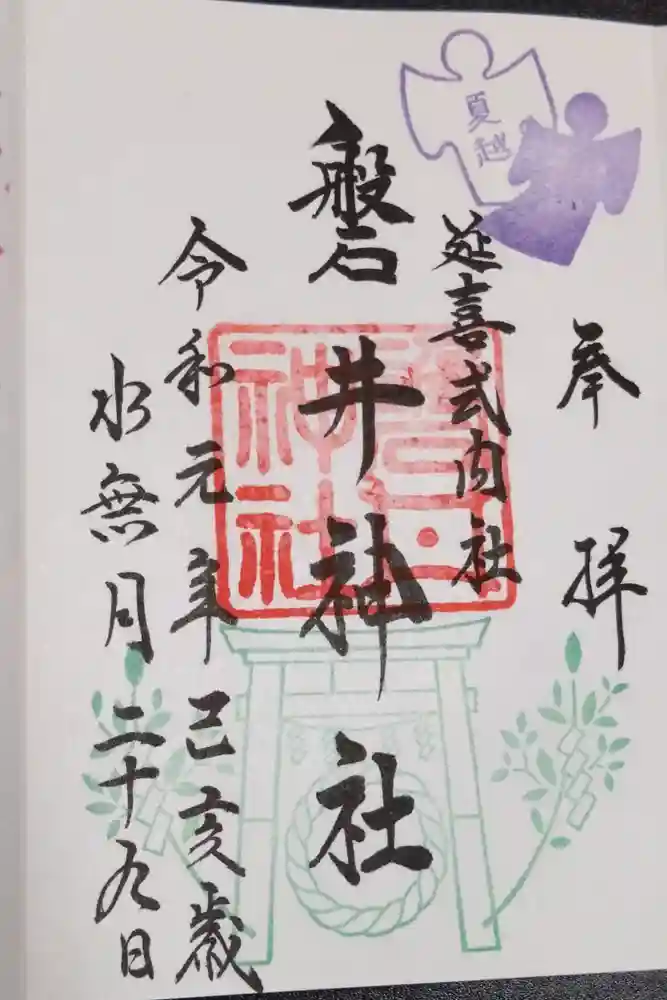 奉拝
夏越
延喜式内社
磐井神社
令和元年己亥歳
水無月二十九日